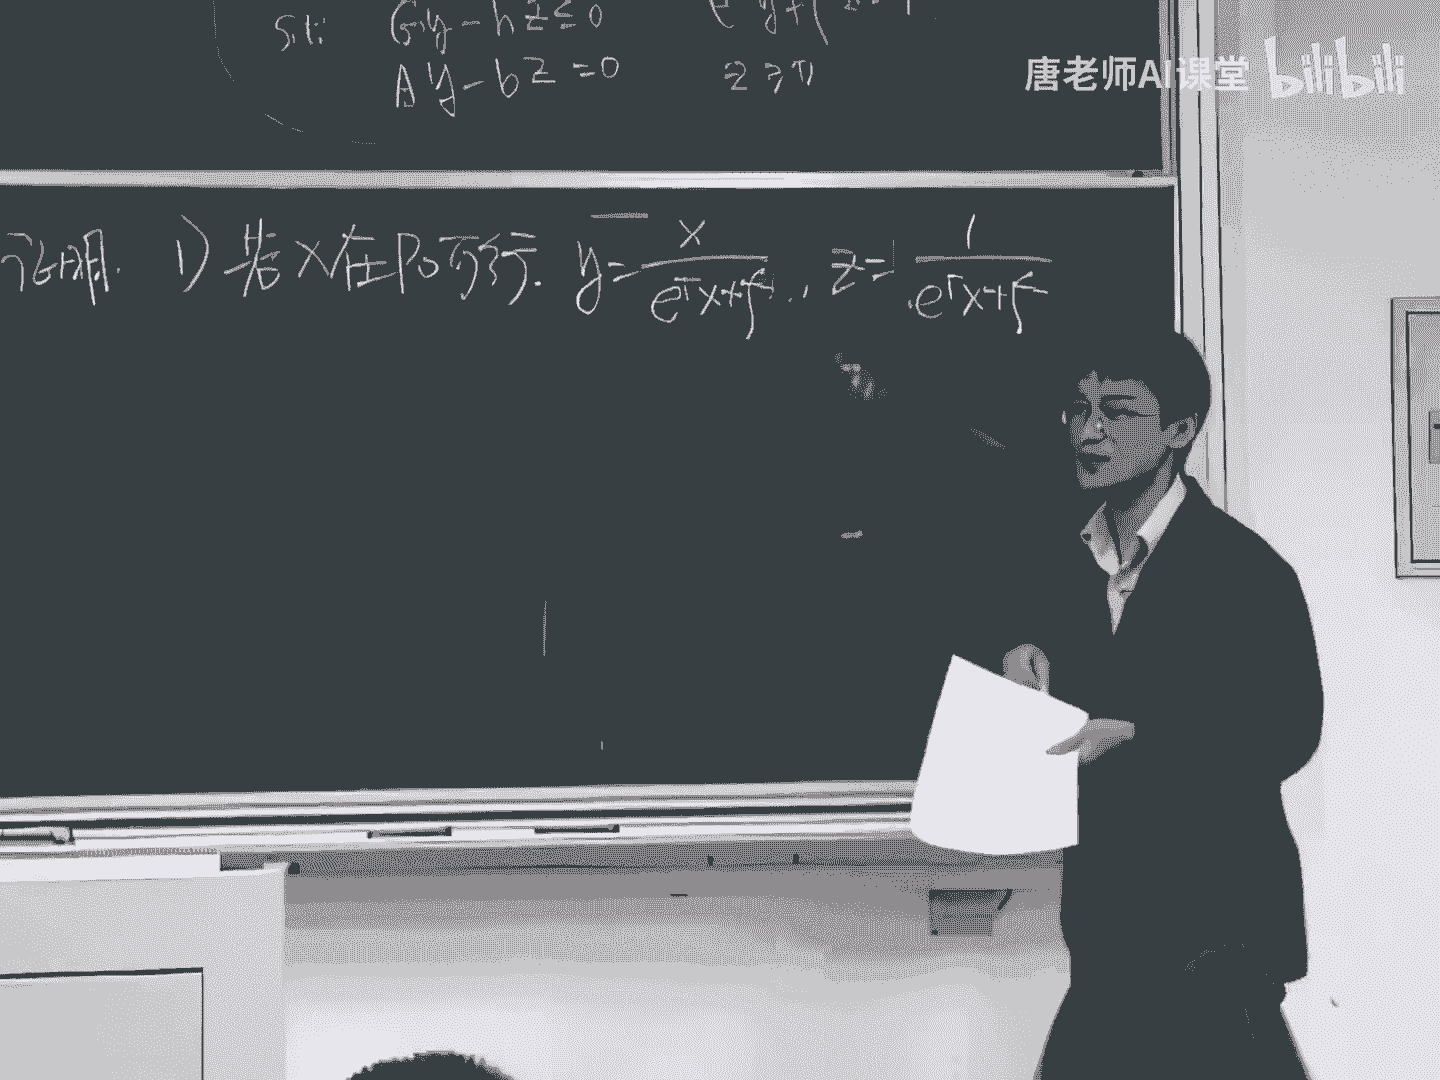 s.t. Gy - hz ≤ 0 eᵀy + fz = 1
Ay - bz = 0 z ≥ 0
唐老师AI课堂 bilibili
证明. 1) 若x在P₀可行. y = x/(eᵀx+f), z = 1/(eᵀx+f)